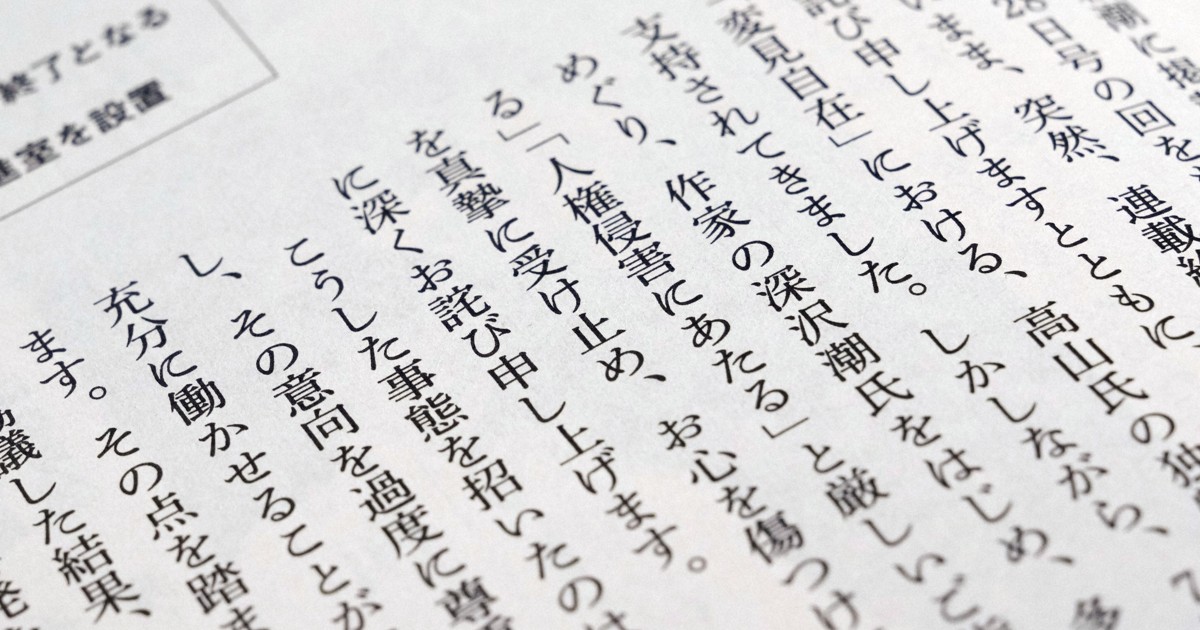 終了となる
室を設置
潮に掲
28日号の回を
いまま、突然、連載終
詫び申し上げますとともに、
「変見自在」における、高山氏の独
支持されてきました。しかしながら、
めぐり、作家の深沢潮氏をはじめ、多
る」「人権侵害にあたる」と厳しいご
を真摯に受け止め、お心を傷つけ
に深くお詫び申し上げます。
こうした事態を招いたのは
し、その意向を過度に尊
充分に働かせることが
ます。その点を踏ま
議した結果、